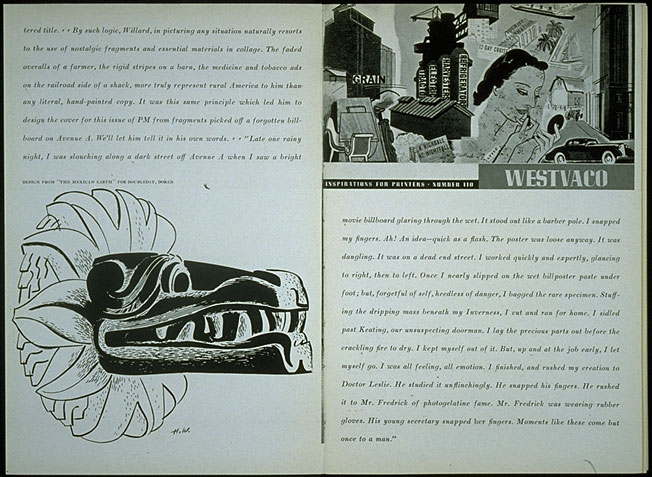 tered title. • • By such logic, Willard, in picturing any situation naturally resorts
to the use of nostalgic fragments and essential materials in collage. The faded
overalls of a farmer, the rigid stripes on a barn, the medicine and tobacco ads
on the railroad side of a shack, more truly represent rural America to him than
any literal, hand-painted copy. It was this same principle which led him to
design the cover for this issue of PM from fragments picked off a forgotten bill-
board on Avenue A. We'll let him tell it in his own words. • • "Late one rainy
night, I was slouching along a dark street off Avenue A when I saw a bright
DESIGN FROM "THE MEXICAN EARTH" FOR DOUBLEDAY, DORAN
H.W.
GRAIN
TRACTOR
ELECTRIC
HARVESTER
REFRIGERATOR
A HIGHBALL
AT NIGHTFALL
INSPIRATIONS FOR PRINTERS · NUMBER 110
WESTVACO
movie billboard glaring through the wet. It stood out like a barber pole. I snapped
my fingers. Ah! An idea—quick as a flash. The poster was loose anyway. It was
dangling. It was on a dead end street. I worked quickly and expertly, glancing
to right, then to left. Once I nearly slipped on the wet billposter paste under
foot; but, forgetful of self, heedless of danger, I bagged the rare specimen. Stuff-
ing the dripping mass beneath my Inverness, I cut and ran for home. I sidled
past Keating, our unsuspecting doorman. I lay the precious parts out before the
crackling fire to dry. I kept myself out of it. But, up and at the job early, I let
myself go. I was all feeling, all emotion. I finished, and rushed my creation to
Doctor Leslie. He studied it unflinchingly. He snapped his fingers. He rushed
it to Mr. Fredrick of photogelatine fame. Mr. Fredrick was wearing rubber
gloves. His young secretary snapped her fingers. Moments like these come but
once to a man."